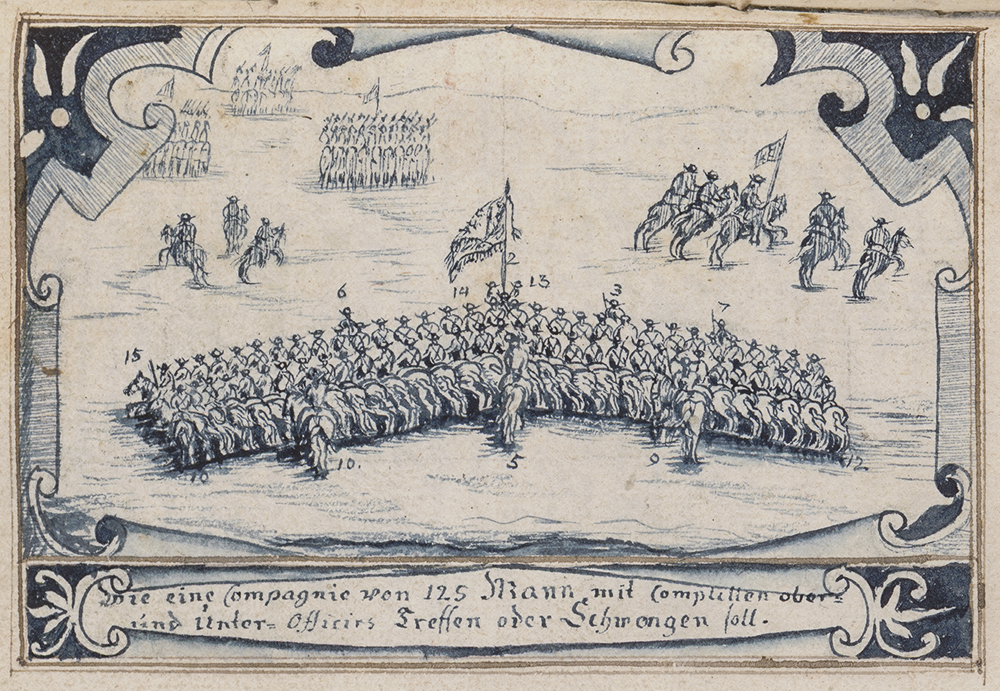 2
14
13
6
3
7
15
10
10.
5
9
12.
Wie eine Compagnie von 125 Mann, mit Completten ober=
und Unter= Officirs Treffen oder Schwengen soll.